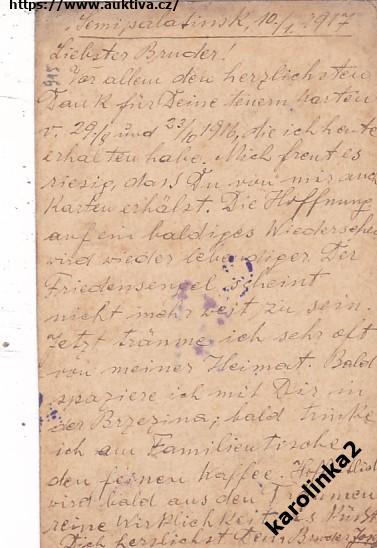 https://www.auktiva.cz/
Semipalatinsk, 10/I 1917
Liebster Bruder!
Vor allem den herzlichsten
Dank für Deine teuern Karten
v. 29/9 und 23/10 1916, die ich heute
erhalten habe. Mich freut es
riesig, dass Du von mir auch
Karten erhälst. Die Hoffnung
auf ein baldiges Wiedersehen
wird wieder lebendiger. Der
Friedensengel scheint
nicht mehr weit zu sein.
Jetzt träume ich sehr oft
von meiner Heimat. Bald
spaziere ich mit Dir in
der Brzezina; bald trinke
ich am Familientische
den feinen Kaffee. Hoffentlich
wird bald aus den Träumen
reine Wirklichkeit. Es küsst
Dich herzlichst Dein Bruder
karolinka2